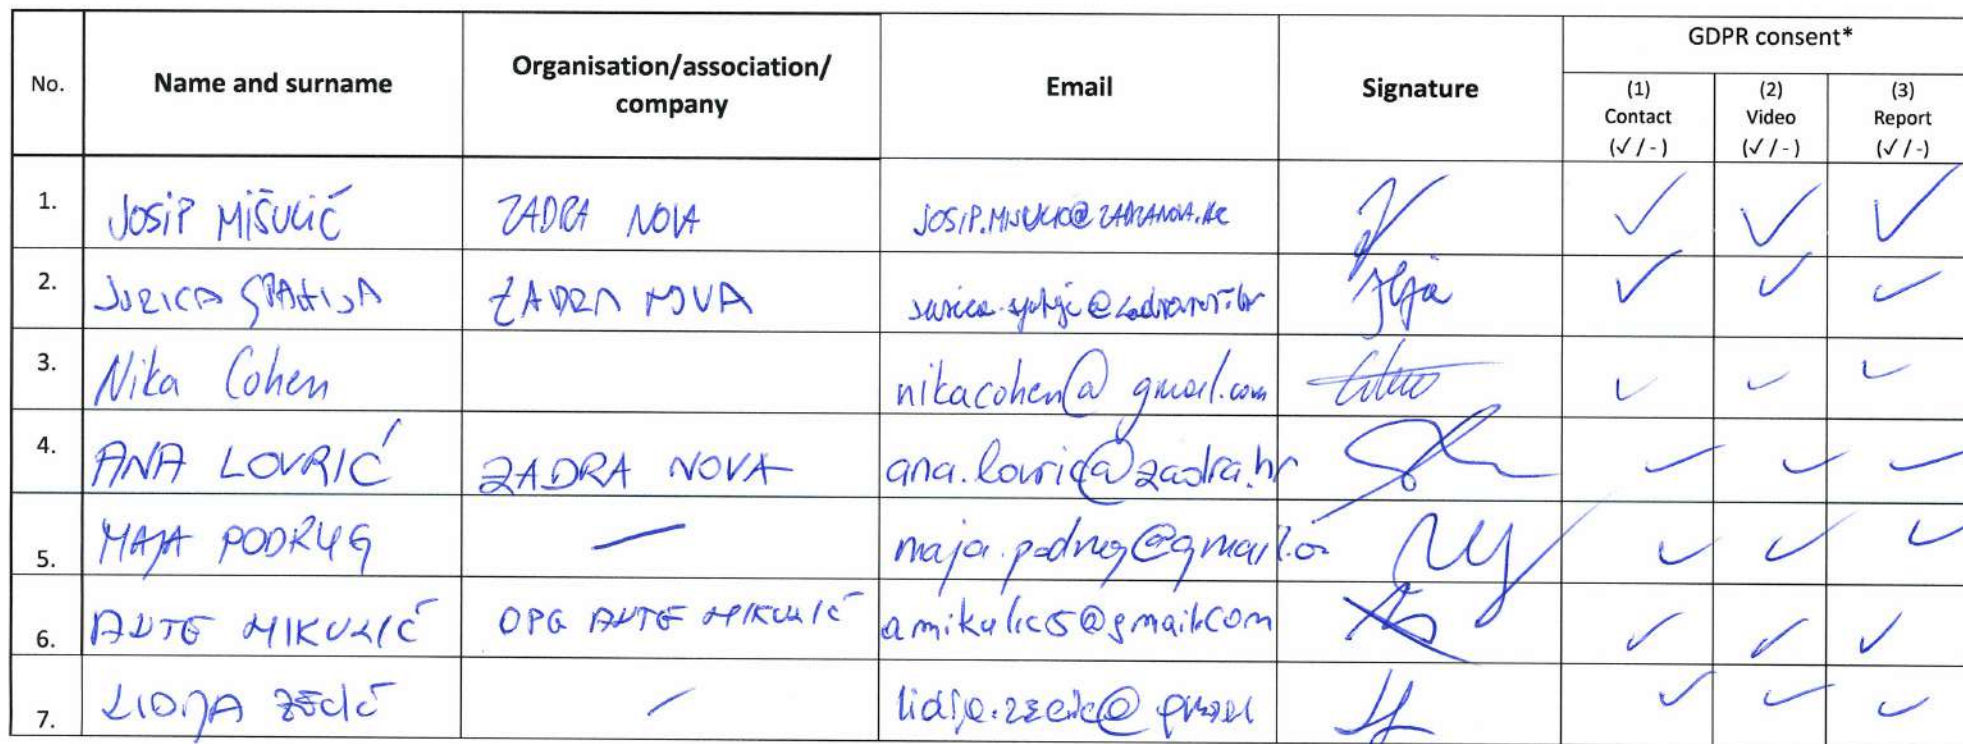 No. Name and surname Organisation/association/ company Email Signature GDPR consent*
(1) Contact (✓ / - ) (2) Video (✓ / - ) (3) Report (✓ / -)
1. JOSIP MIŠULIĆ ZADRA NOVA JOSIP.MISULIC@ZADRANOVA.HR ✓ ✓ ✓
2. JURICA SPAHIJA ZADRA NOVA ✓ ✓ ✓
3. Nika Cohen nikacohen@gmail.com ✓ ✓ ✓
4. ANA LOVRIĆ ZADRA NOVA ana.lovric@zadra.hr ✓ ✓ ✓
5. MAJA PODRUG — ✓ ✓ ✓
6. ANTE MIKULIĆ OPG ANTE MIKULIĆ amikulic5@gmail.com ✓ ✓ ✓
7. LIDIJA ZECIĆ — lidija.zecic@gmail ✓ ✓ ✓